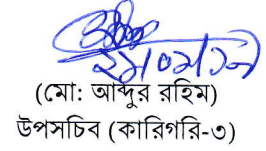 (মো: আব্দুর রহিম)
উপসচিব (কারিগরি-৩)